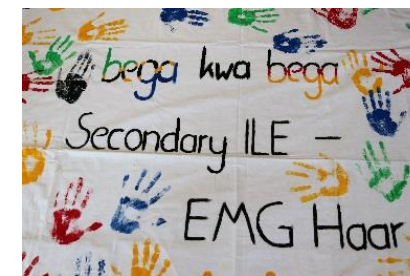 bega kwa bega
Secondary ILE –
EMG Haar